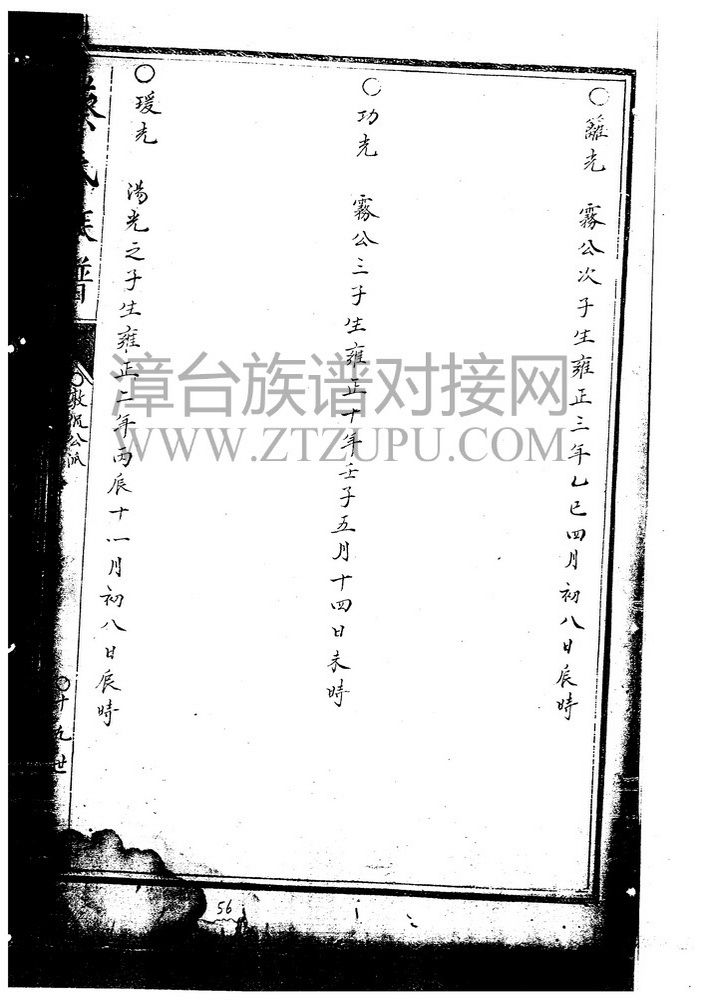 ○籬光 霧公次子生雍正三年乙巳四月初八日辰時
○功光 霧公三子生雍正十年壬子五月十四日未時
○瑗光 湯光之子生雍正二年丙辰十一月初八日辰時
氏族譜
○十九世
漳台族谱对接网
WWW.ZTZUPU.COM
56